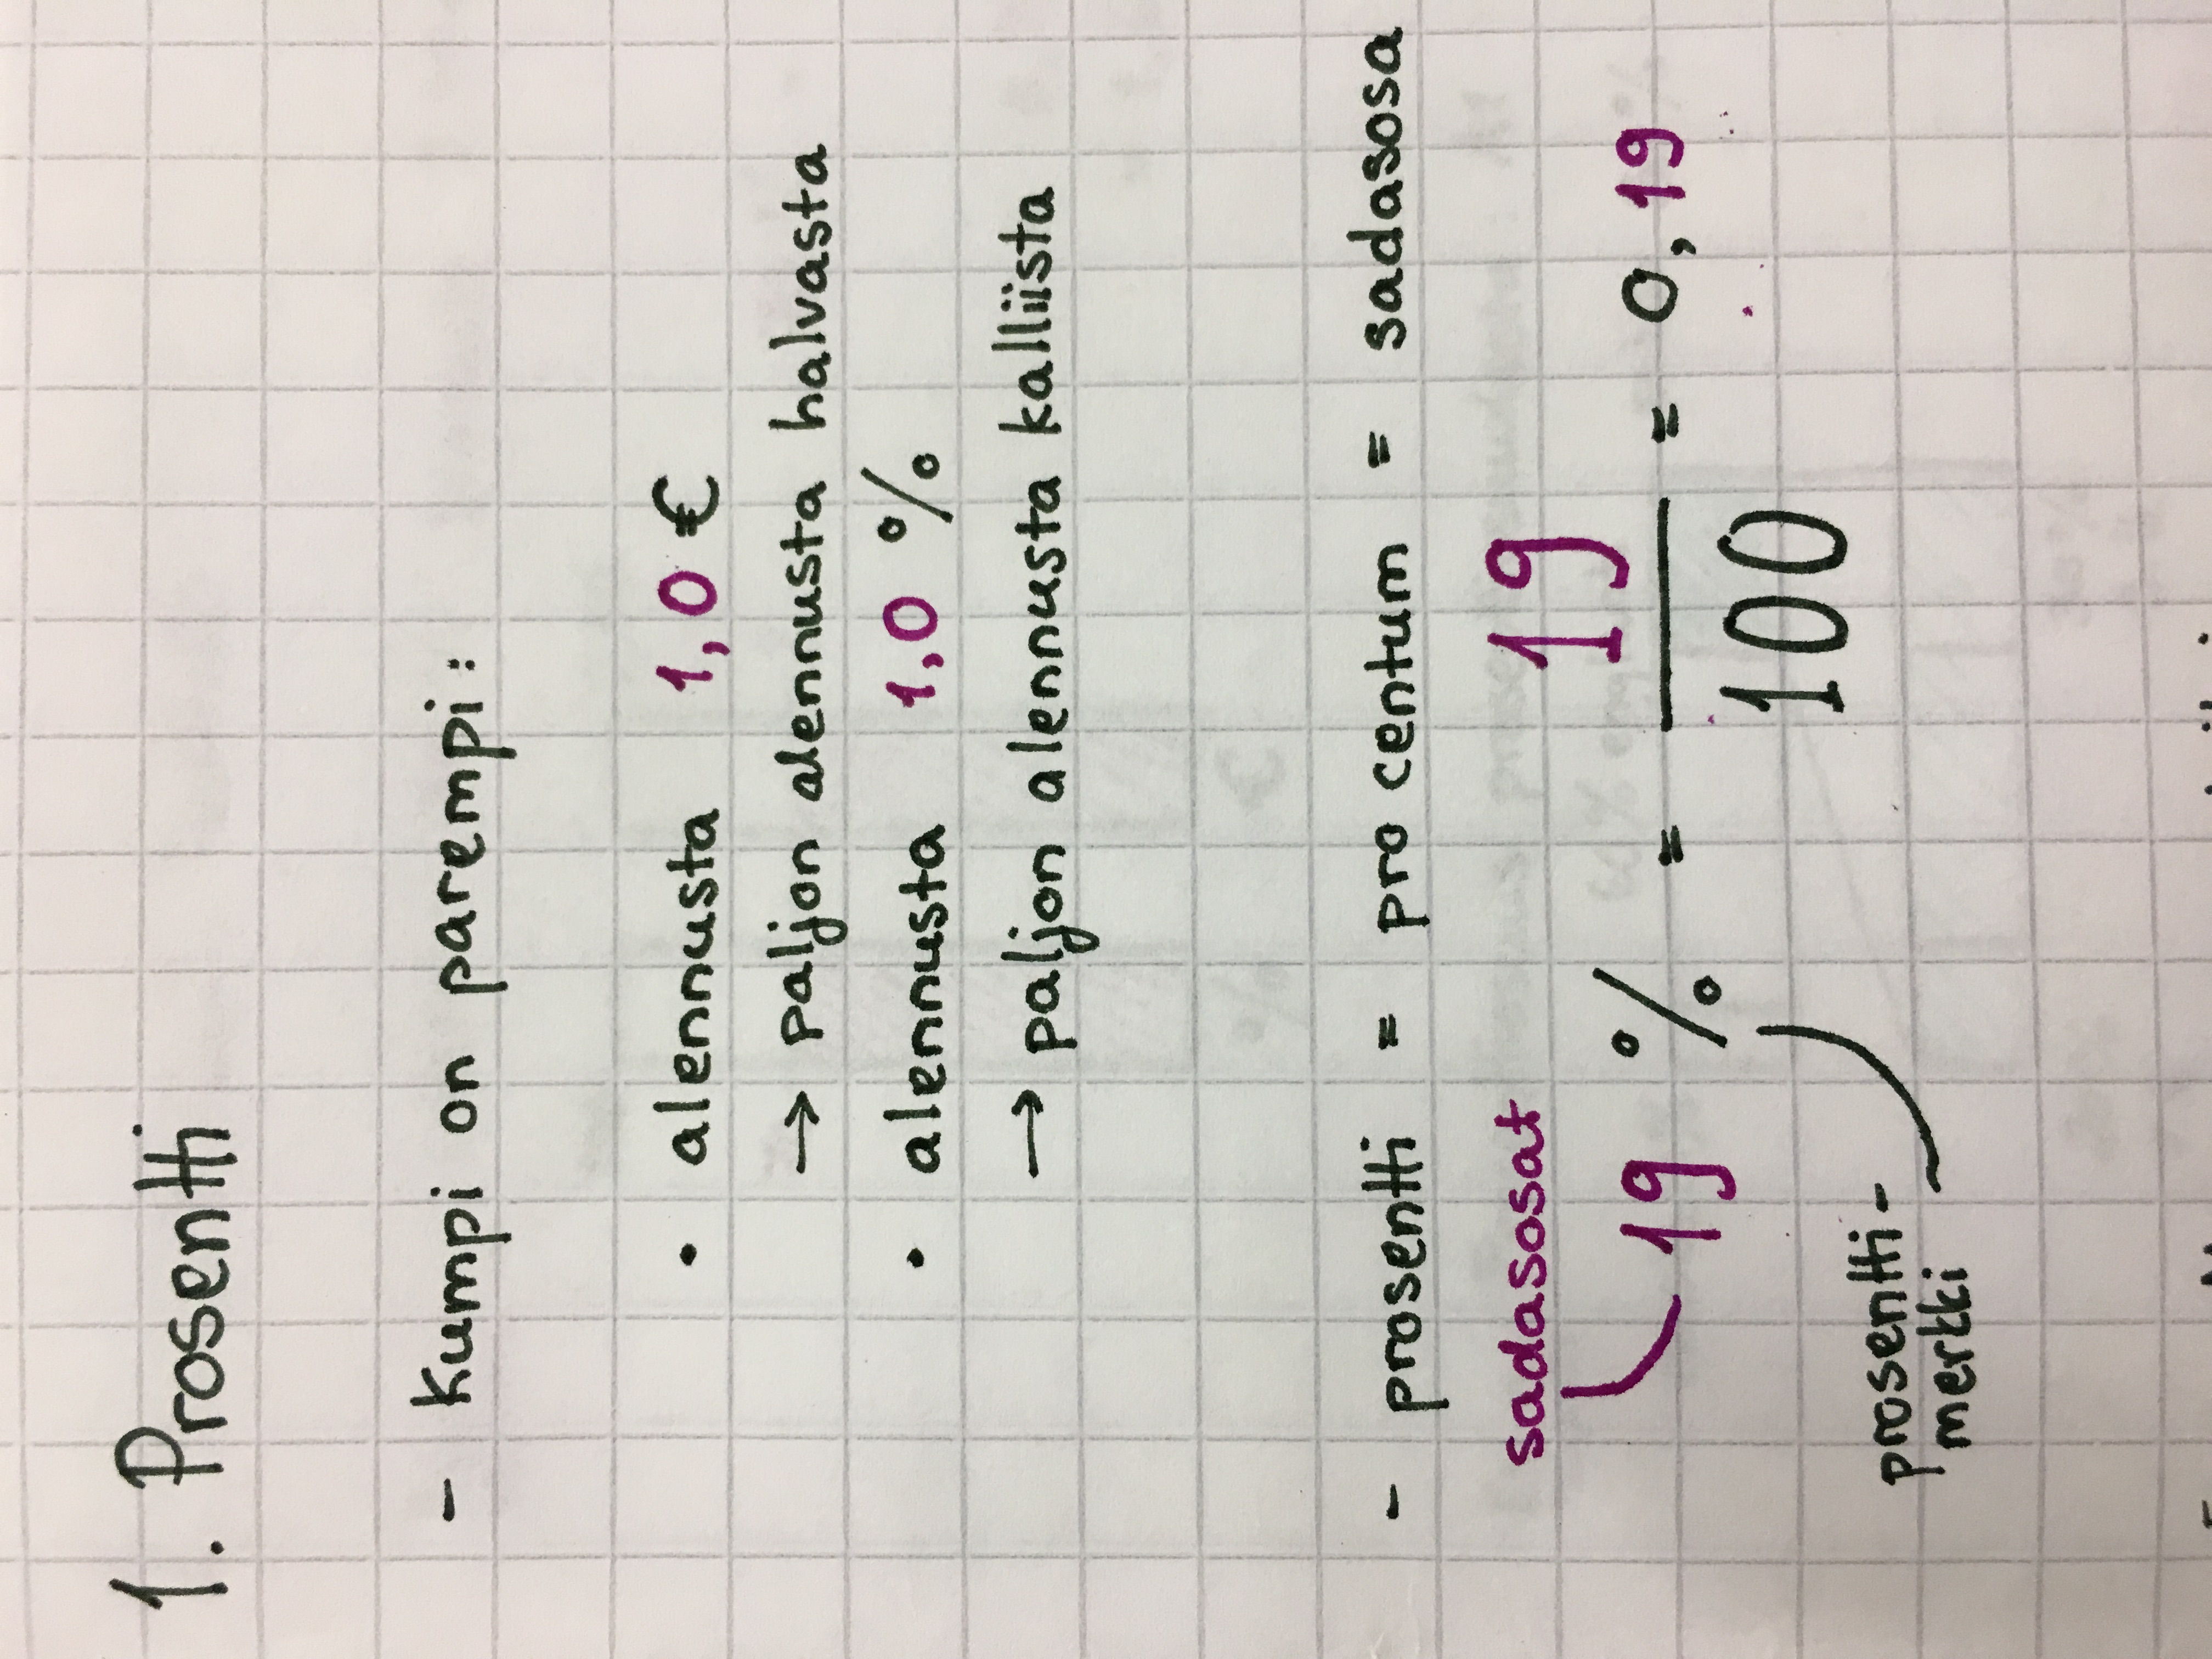 1. Prosentti
- Kumpi on parempi:
• alennusta 1,0 €
→ paljon alennusta halvasta
• alennusta 1,0 %
→ paljon alennusta kalliista
- prosentti = pro centum = sadasosa
sadasosat
19 % = 19/100 = 0,19
prosentti-
merkki